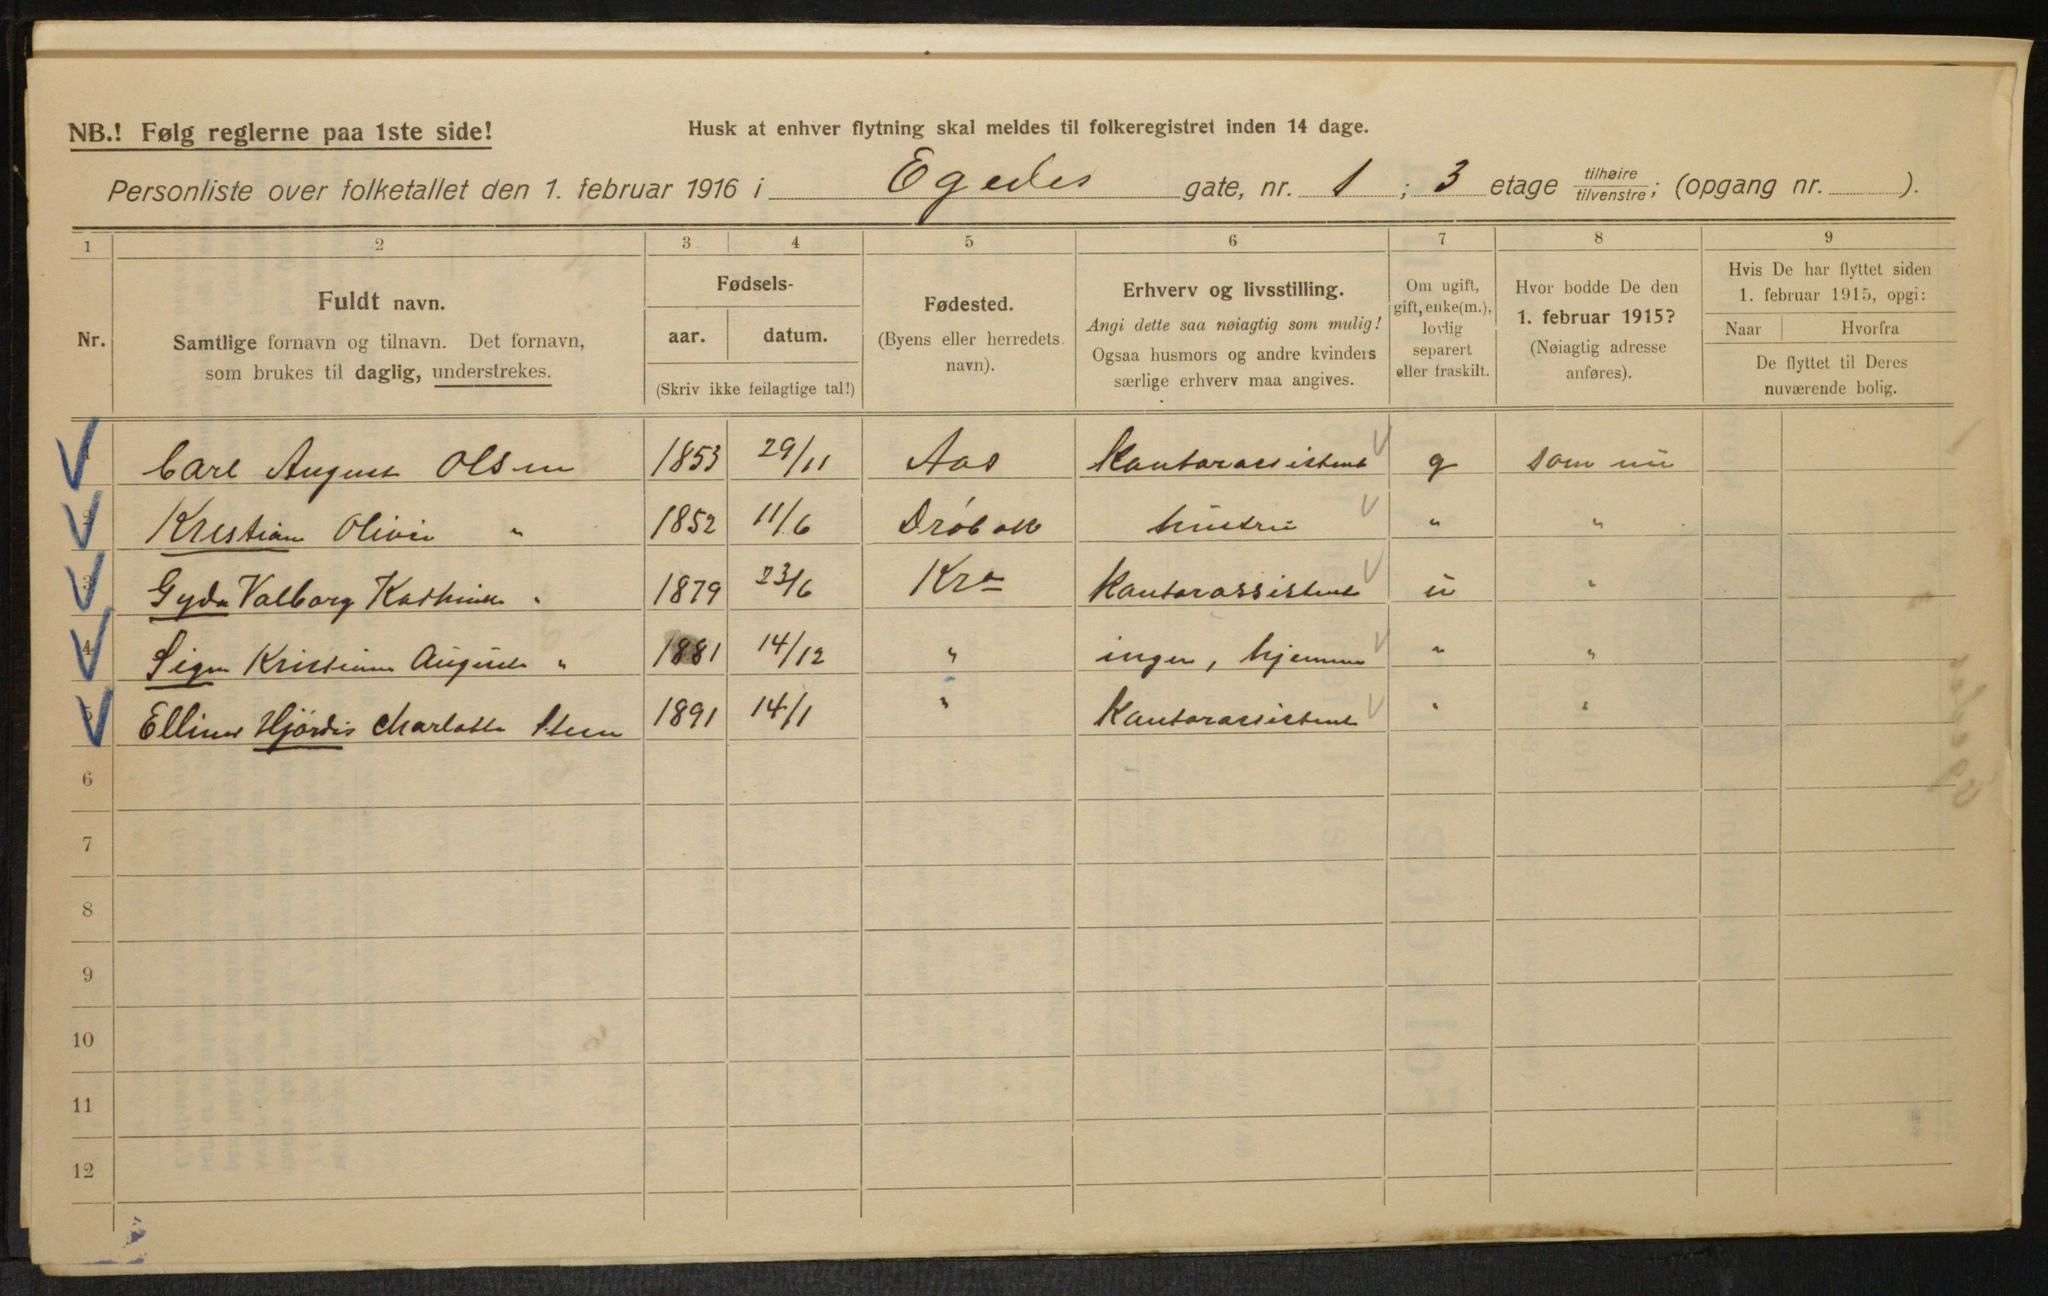 NB.! Følg reglerne paa 1ste side!
Husk at enhver flytning skal meldes til folkeregistret inden 14 dage.
Personliste over folketallet den 1. februar 1916 i Egedes gate, nr. 1 ; 3 etage tilhøire/tilvenstre; (opgang nr. ).
1 2 3 4 5 6 7 8 9
Nr.
Fuldt navn.
Samtlige fornavn og tilnavn. Det fornavn,
som brukes til daglig, understrekes.
Fødsels-
aar. datum.
(Skriv ikke feilagtige tal!)
Fødested.
(Byens eller herredets
navn).
Erhverv og livsstilling.
Angi dette saa nøiagtig som mulig!
Ogsaa husmors og andre kvinders
særlige erhverv maa angives.
Om ugift,
gift, enke(m.),
lovlig
separert
eller fraskilt.
Hvor bodde De den
1. februar 1915?
(Nøiagtig adresse
anføres).
Hvis De har flyttet siden
1. februar 1915, opgi:
Naar Hvorfra
De flyttet til Deres
nuværende bolig.
Carl August Olsen 1853 29/11 Aas Kantorassistent g som nu
2 Kristian Olivie " 1852 11/6 Drøbak hustru " "
3 Gyda Valborg Kathinka " 1879 23/6 Kra Kantorassistent u "
4 Signe Kristiane Augusta " 1881 14/12 " ingen, hjemme " "
5 Ellinor Hjördis Charlotte Steen 1891 14/1 " Kantorassistent " "
6
7
8
9
10
11
12